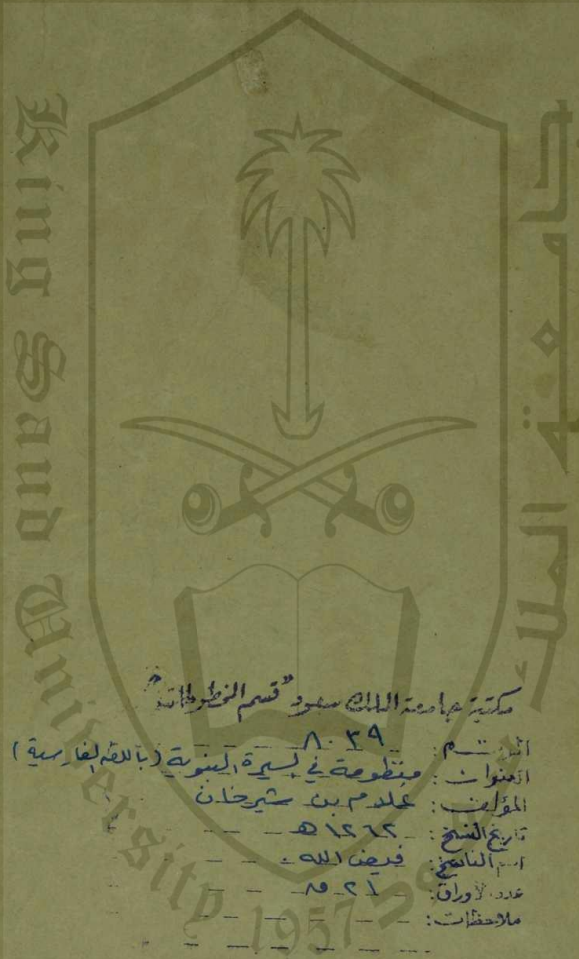 King Saud University 1957
جامعة الملك سعود
مكتبة جامعة الملك سعود "قسم المخطوطات"
الرقم: ٨٠٣٩
العنوان: منظومة في السيرة النبوية (باللغة الفارسية)
المؤلف: غلام بن شيرخان
تاريخ النسخ: ١٢٦٢ هـ
اسم الناسخ: فيض الله
عدد الأوراق: ٢١
ملاحظات: